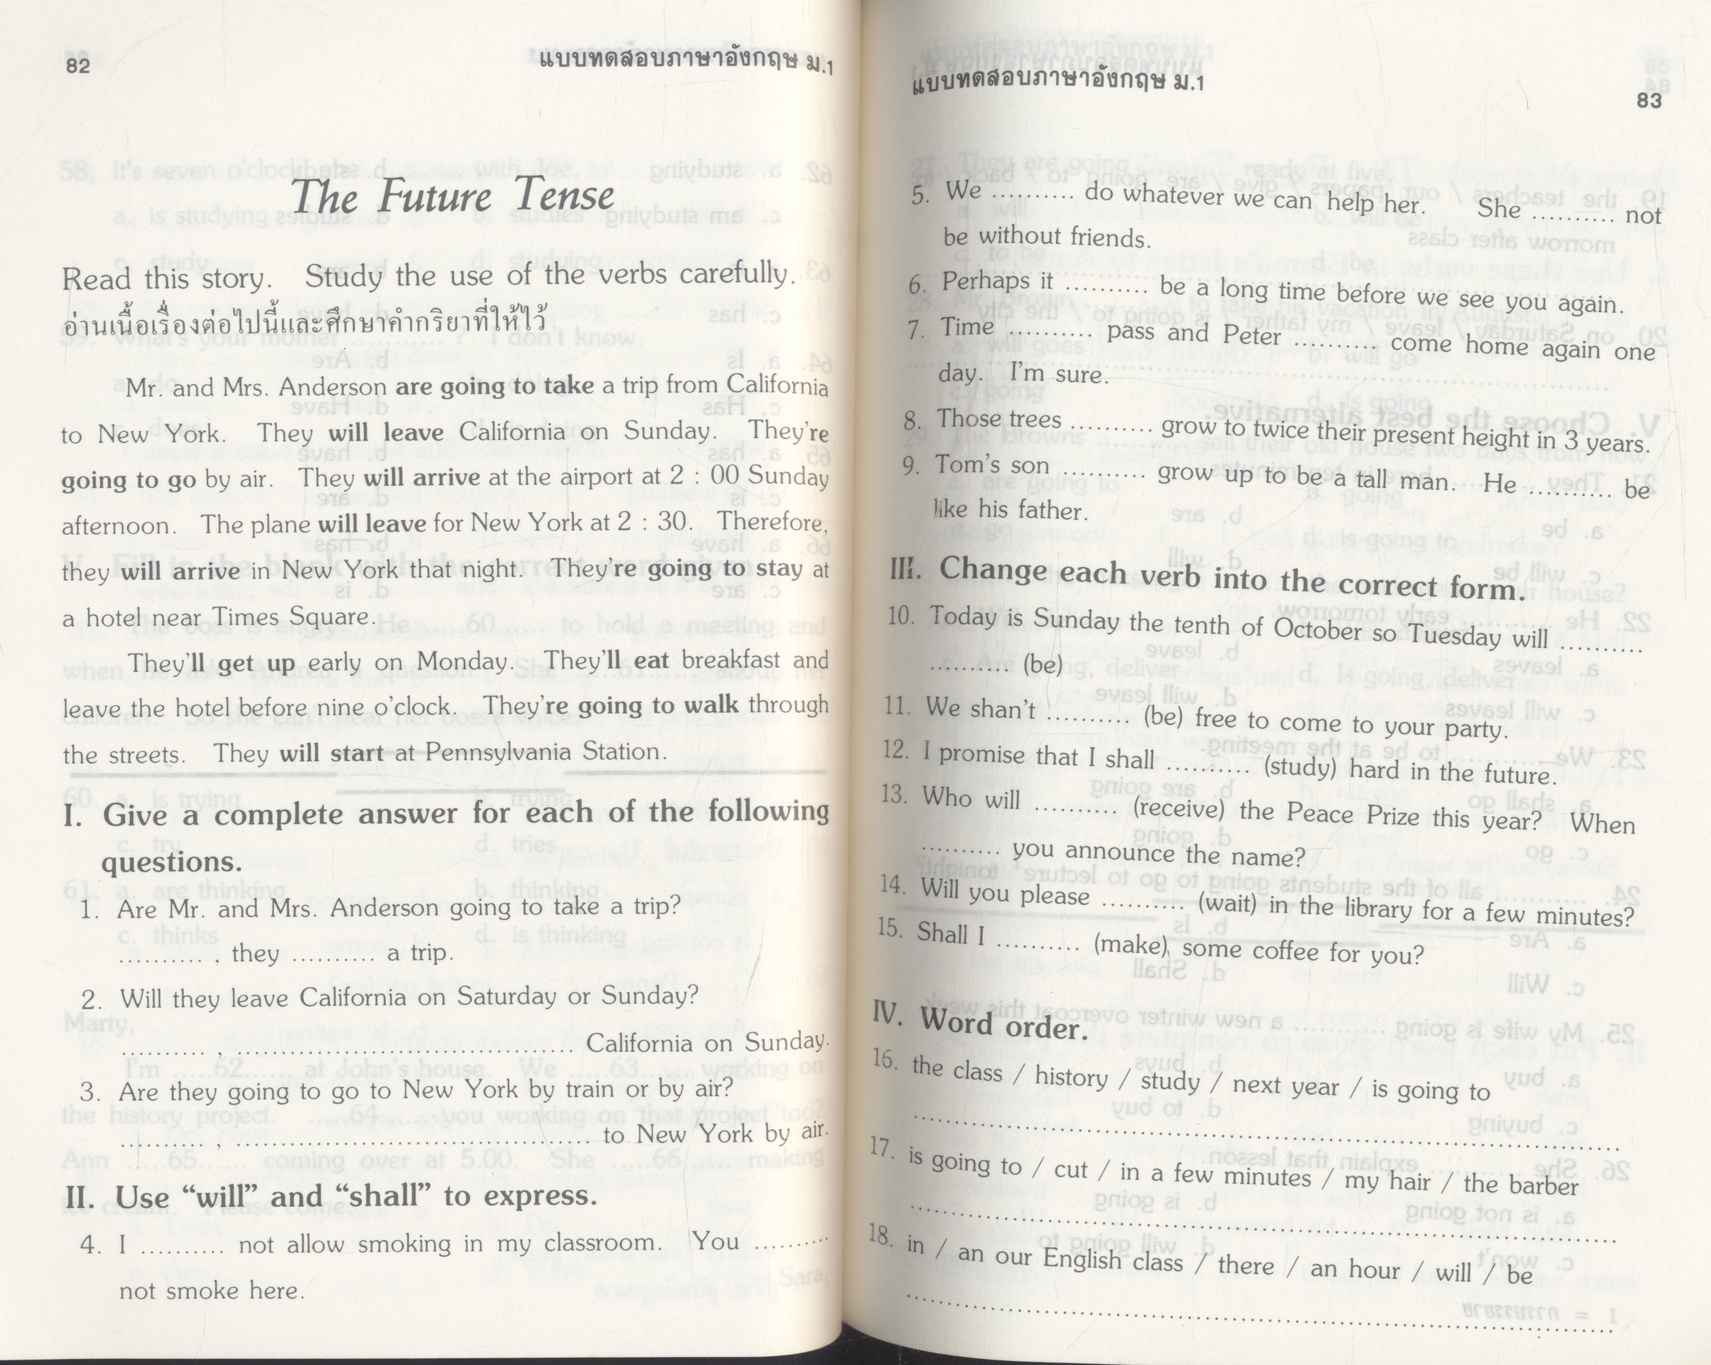 82
แบบทดสอบภาษาอังกฤษ ม.1
The Future Tense
Read this story. Study the use of the verbs carefully.
อ่านเนื้อเรื่องต่อไปนี้และศึกษาคำกริยาที่ให้ไว้
Mr. and Mrs. Anderson are going to take a trip from California
to New York. They will leave California on Sunday. They're
going to go by air. They will arrive at the airport at 2 : 00 Sunday
afternoon. The plane will leave for New York at 2 : 30. Therefore,
they will arrive in New York that night. They're going to stay at
a hotel near Times Square.
They'll get up early on Monday. They'll eat breakfast and
leave the hotel before nine o'clock. They're going to walk through
the streets. They will start at Pennsylvania Station.
I. Give a complete answer for each of the following
questions.
1. Are Mr. and Mrs. Anderson going to take a trip?
.......... , they .......... a trip.
2. Will they leave California on Saturday or Sunday?
.......... , ........................................ California on Sunday.
3. Are they going to go to New York by train or by air?
.......... , .......................................... to New York by air.
II. Use “will” and “shall” to express.
4. I .......... not allow smoking in my classroom. You .........
not smoke here.
แบบทดสอบภาษาอังกฤษ ม.1
83
5. We .......... do whatever we can help her. She .......... not
be without friends.
6. Perhaps it .......... be a long time before we see you again.
7. Time .......... pass and Peter .......... come home again one
day. I'm sure.
8. Those trees .......... grow to twice their present height in 3 years.
9. Tom's son .......... grow up to be a tall man. He .......... be
like his father.
III. Change each verb into the correct form.
10. Today is Sunday the tenth of October so Tuesday will ..........
.......... (be)
11. We shan't .......... (be) free to come to your party.
12. I promise that I shall .......... (study) hard in the future.
13. Who will .......... (receive) the Peace Prize this year? When
.......... you announce the name?
14. Will you please .......... (wait) in the library for a few minutes?
15. Shall I .......... (make) some coffee for you?
IV. Word order.
16. the class / history / study / next year / is going to
....................................................................................
17. is going to / cut / in a few minutes / my hair / the barber
....................................................................................
18. in / an our English class / there / an hour / will / be
....................................................................................